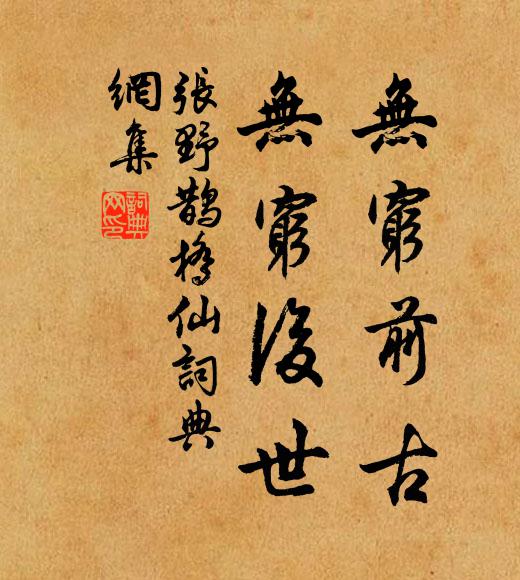 無窮前古
無窮後世
張野鵲橋仙詞典
網集
詞典
网印